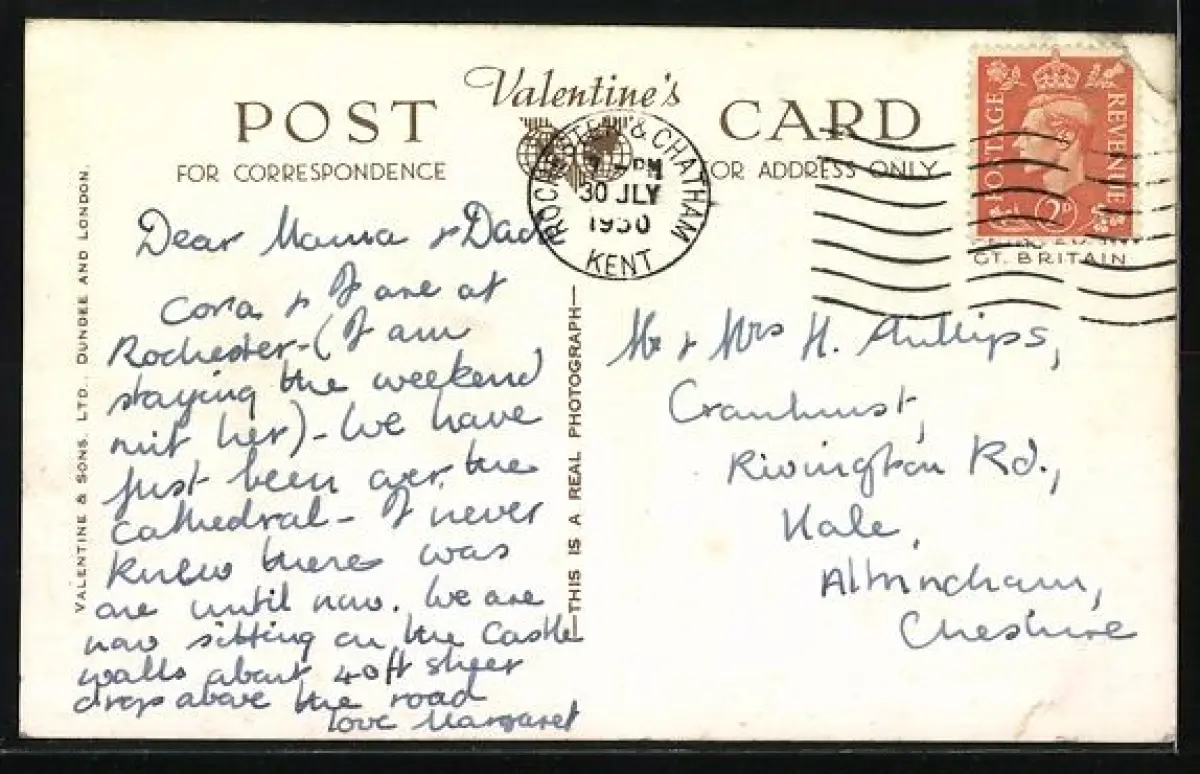 Valentine's
POST CARD
FOR CORRESPONDENCE
OR ADDRESS ONLY
ROCHESTER & CHATHAM
PM
30 JLY
1950
KENT
POSTAGE REVENUE
2D
GT. BRITAIN
VALENTINE & SONS, LTD., DUNDEE AND LONDON.
THIS IS A REAL PHOTOGRAPH
Dear Mama & Dad
Cora & I are at
Rochester - (I am
staying the weekend
mit her) - We have
just been over the
cathedral - I never
knew there was
one until now. We are
now sitting on the Castle
walls about 40ft sheer
drop above the road
Love Margaret
Mr & Mrs H. Phillips,
Cranhurst,
Rivington Rd.,
Hale,
Altrincham,
Cheshire